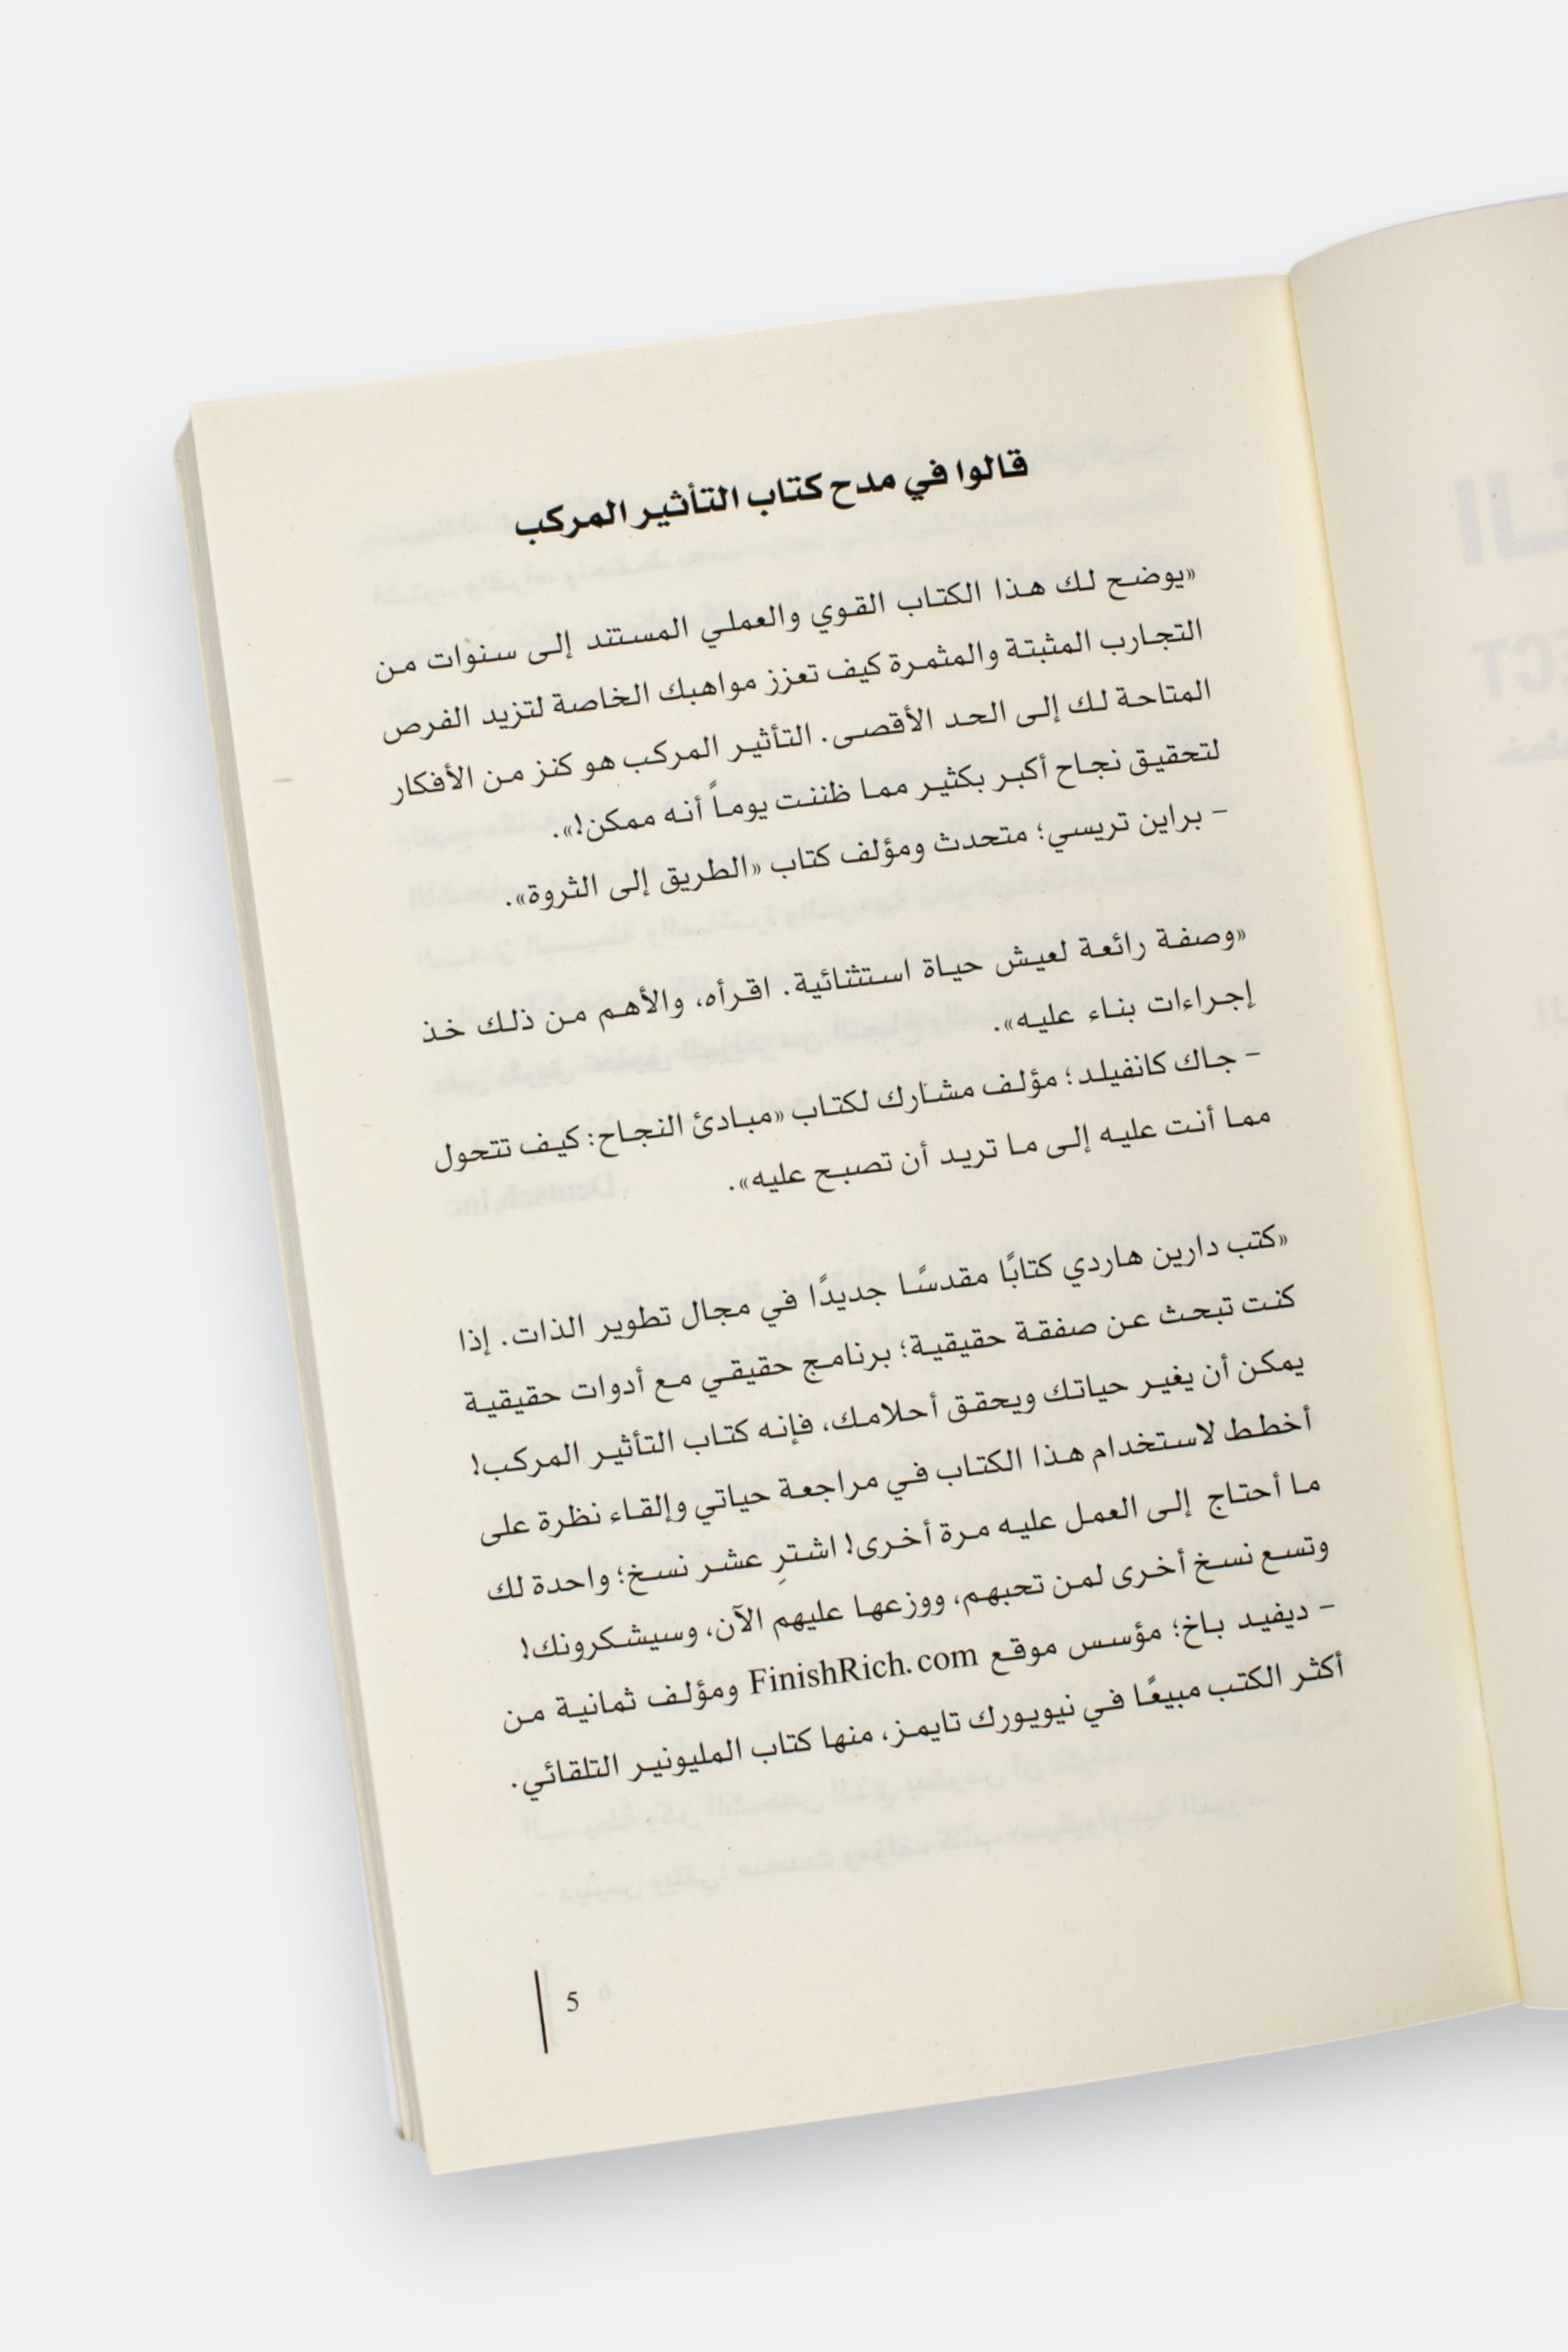 قالوا في مدح كتاب التأثير المركب
«يوضح لك هذا الكتاب القوي والعملي المستند إلى سنوات من
التجارب المثبتة والمثمرة كيف تعزز مواهبك الخاصة لتزيد الفرص
المتاحة لك إلى الحد الأقصى. التأثير المركب هو كنز من الأفكار
لتحقيق نجاح أكبر بكثير مما ظننت يوماً أنه ممكن!».
- براين تريسي؛ متحدث ومؤلف كتاب «الطريق إلى الثروة».
«وصفة رائعة لعيش حياة استثنائية. اقرأه، والأهم من ذلك خذ
إجراءات بناء عليه».
- جاك كانفيلد؛ مؤلف مشارك لكتاب «مبادئ النجاح: كيف تتحول
مما أنت عليه إلى ما تريد أن تصبح عليه».
«كتب دارين هاردي كتابًا مقدسًا جديدًا في مجال تطوير الذات. إذا
كنت تبحث عن صفقة حقيقية؛ برنامج حقيقي مع أدوات حقيقية
يمكن أن يغير حياتك ويحقق أحلامك، فإنه كتاب التأثير المركب!
أخطط لاستخدام هذا الكتاب في مراجعة حياتي وإلقاء نظرة على
ما أحتاج إلى العمل عليه مرة أخرى! اشترِ عشر نسخ؛ واحدة لك
وتسع نسخ أخرى لمن تحبهم، ووزعها عليهم الآن، وسيشكرونك!
- ديفيد باخ؛ مؤسس موقع FinishRich.com ومؤلف ثمانية من
أكثر الكتب مبيعًا في نيويورك تايمز، منها كتاب المليونير التلقائي.
5